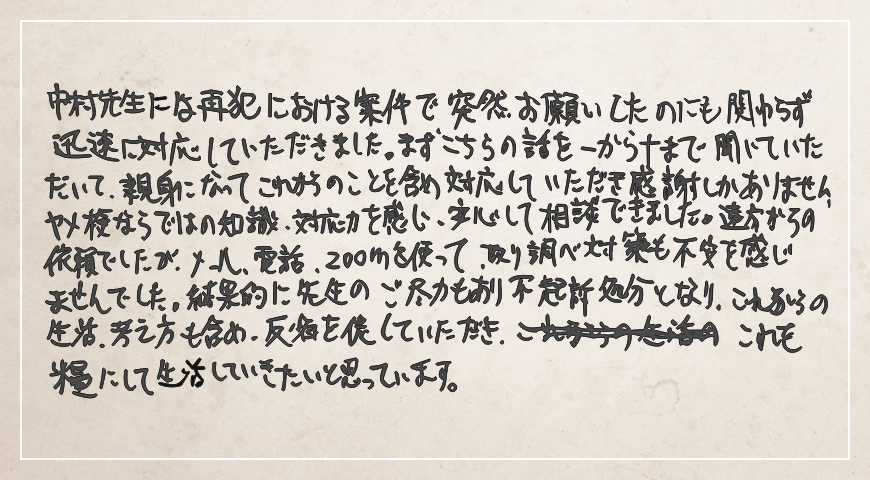 中村先生には再犯における案件で突然お願いしたのにも関わらず
迅速に対応していただきました。まずこちらの話を一から十まで聞いていた
だいて、親身になってこれからのことを含め対応していただき感謝しかありません。
ヤメ検ならではの知識、対応力を感じ、安心して相談できました。遠方からの
依頼でしたが、メール、電話、zoomを使って、取り調べ対策も不安を感じ
ませんでした。結果的に先生のご尽力もあり不起訴処分となり、これからの
生活、考え方も含め、反省を促していただき、これも
糧にして生活していきたいと思っています。